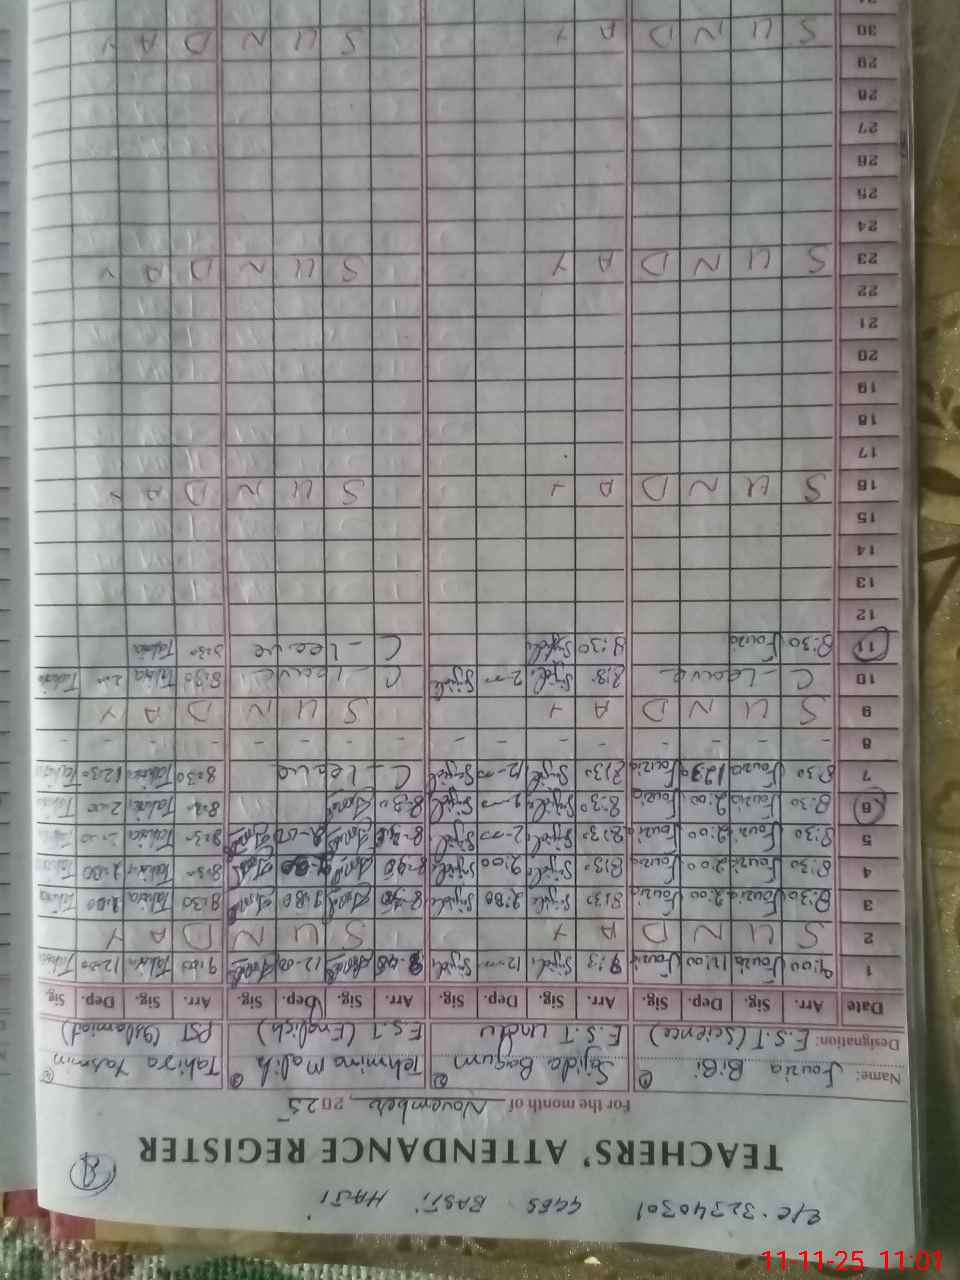 32340301 GGES BASTI HAJI
TEACHERS' ATTENDANCE REGISTER
For the month of November, 2025
Name: Fouzia BiBi Sajida Begum Tehmina Malik Tahira Yasmin
Designation: E.S.T (Science) E.S.T Urdu E.S.T (English) PST (Islamiat)
Date Arr. Sig. Dep. Sig. Arr. Sig. Dep. Sig. Arr. Sig. Dep. Sig. Arr. Sig. Dep. Sig.
1 9:00 Fouzia 12:00 Fouzia Sajida Sajida 12-00 9:00 Tahira 12:00 Tahira
2 S U N D A Y S U N D A Y
3 8:30 Fouzia 2:00 Fouzia 8:30 Sajida 2:00 Sajida 8:30 Tahira 2:00 Tahira
4 8:30 Fouzia 2:00 Fouzia 8:30 Sajida 2:00 Sajida 8-40 8:30 Tahira 2:00 Tahira
5 8:30 Fouzia 2:00 Fouzia 8:30 Sajida 2-00 Sajida 8:30 Tahira 2:00 Tahira
6 8:30 Fouzia 2:00 Fouzia 8:30 Sajida 2-00 Sajida 8:30 8:30 Tahira 2:00 Tahira
7 8:30 Fouzia 12:30 Fouzia 8:30 Sajida 12-00 Sajida C - Leave 8:30 Tahira 12:30 Tahira
8 - - - - - - - - - - - - - - - -
9 S U N D A Y S U N D A Y
10 C - Leave 8:30 Sajida 2-00 Sajida C - Leave 8:30 Tahira 2-00 Tahira
11 8:30 Fouzia 8:30 Sajida C - Leave 8:30 Tahira
12
13
14
15
16 S U N D A Y S U N D A Y
17
18
19
20
21
22
23 S U N D A Y S U N D A Y
24
25
26
27
28
29
30 S U N D A Y S U N D A Y
31
11-11-25 11:01